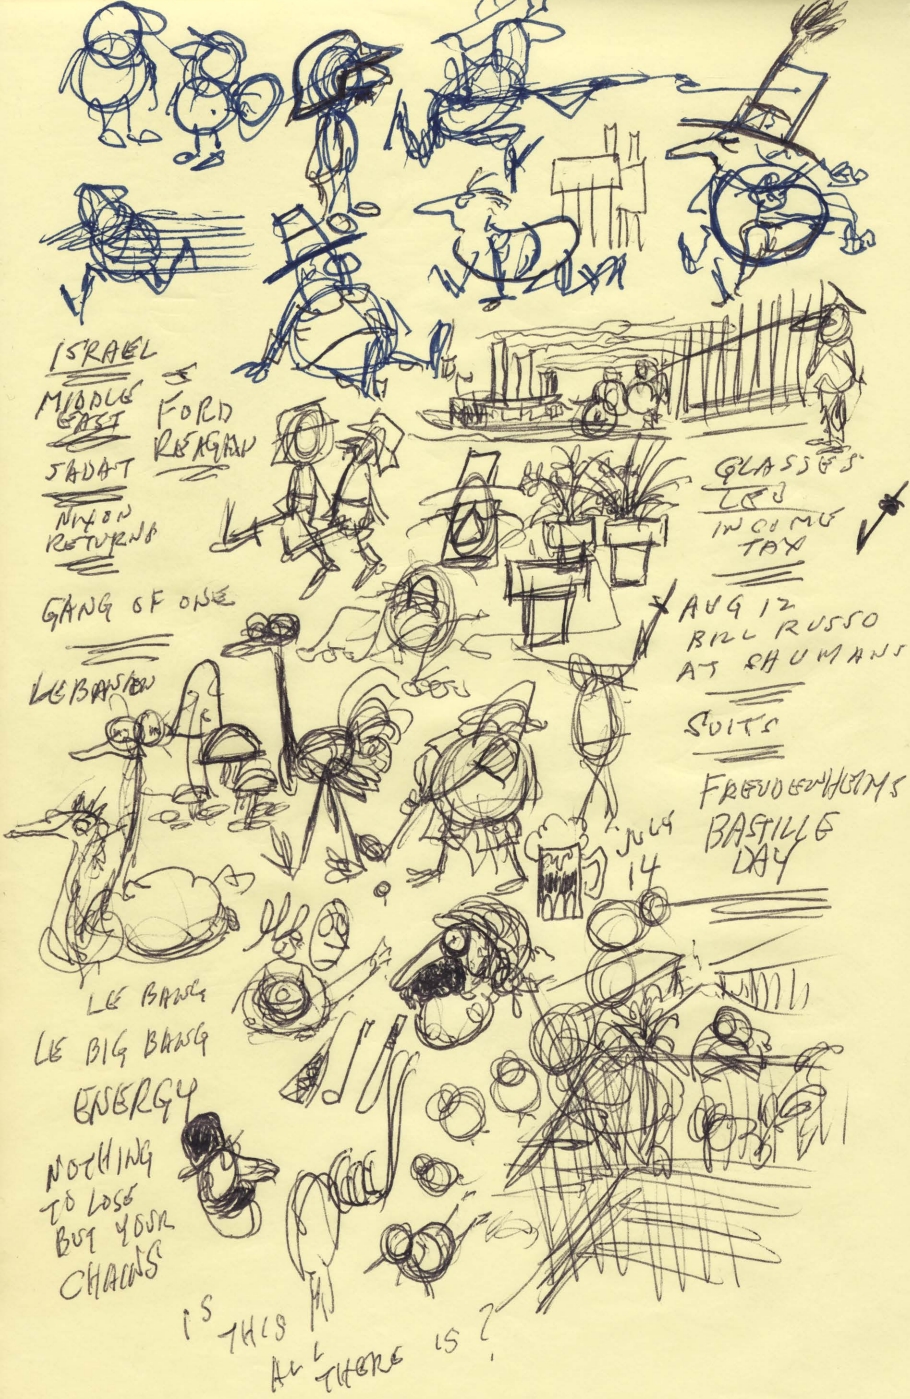 ISRAEL
MIDDLE
EAST
SADAT
NIXON
RETURNS
FORD
REAGAN
GANG OF ONE
LEBANON
GLASSES
LEO
INCOME
TAX
AUG 12
BILL RUSSO
AT SHUMANS
SUITS
FREUDENHEIMS
BASTILLE
DAY
JULY
14
LE BANG
LE BIG BANG
ENERGY
NOTHING
TO LOSE
BUT YOUR
CHAINS
IS
THIS
ALL
THERE IS?